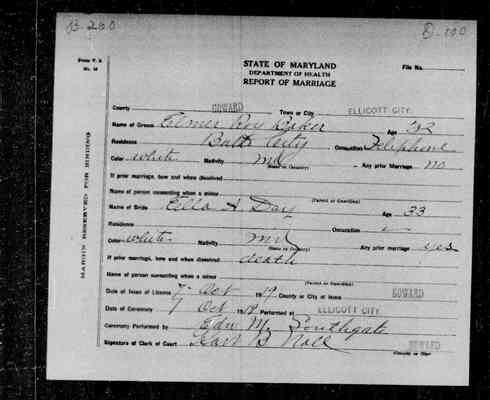 B-200
D-100
Form V. S.
No. 16
STATE OF MARYLAND
DEPARTMENT OF HEALTH
REPORT OF MARRIAGE
File No.
MARGIN RESERVED FOR BINDING
County HOWARD Town or City ELLICOTT CITY.
Name of Groom Elmer Roy Baker Age 32
Residence Balto City Occupation Telephone
Color white Nativity Md Any prior Marriage no
(State or Country)
If prior marriage, how and when dissolved
Name of person consenting when a minor
(Parent or Guardian)
Name of Bride Ella A Day Age 33
Residence " Occupation
Color white Nativity Md Any prior marriage yes
(State or Country)
If prior marriage, how and when dissolved death
Name of person consenting when a minor
(Parent or Guardian)
Date of Issue of License 7 Oct 1919 County or City of Issue HOWARD
Date of Ceremony 7 Oct 1919 Performed at ELLICOTT CITY.
Ceremony Performed by Edw M. Southgate
Signature of Clerk of Court Hart B Noll HOWARD
(County or City)